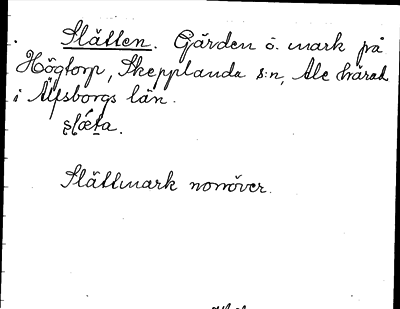 Slätten. Gärden o. mark på
Högtorp, Skepplanda s:n, Ale härad
i Älfsborgs län.
Slättmark norröver.